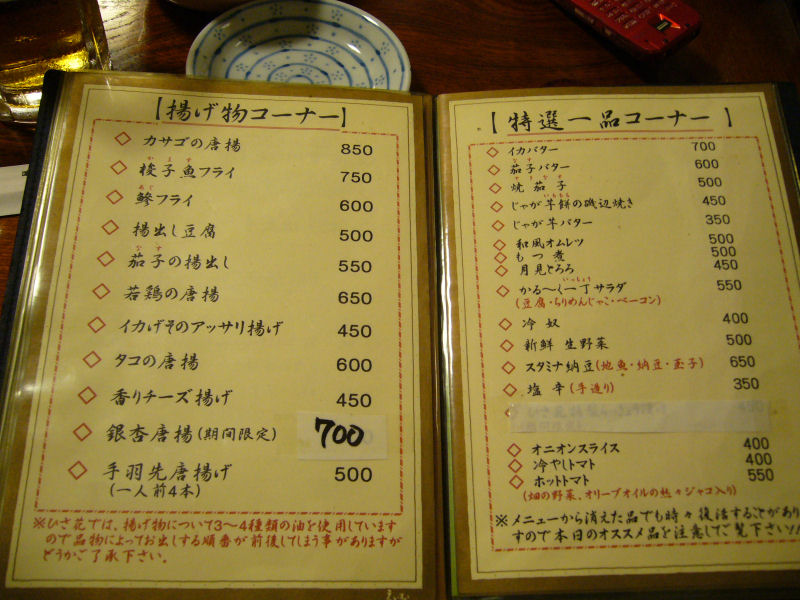 【揚げ物コーナー】
◇ カサゴの唐揚 850
◇ 梭子魚フライ 750
かます
◇ 鯵フライ 600
あじ
◇ 揚出し豆腐 500
◇ 茄子の揚出し 550
なす
◇ 若鶏の唐揚 650
◇ イカげそのアッサリ揚げ 450
◇ タコの唐揚 600
◇ 香りチーズ揚げ 450
◇ 銀杏唐揚(期間限定) 700
◇ 手羽先唐揚げ 500
(一人前4本)
※ひさ花では、揚げ物について3〜4種類の油を使用しています
ので品物によってお出しする順番が前後してしまう事がありますが
どうかご了承下さい。
【 特選一品コーナー 】
◇ イカバター 700
◇ 茄子バター 600
なす
◇ 焼茄子 500
◇ じゃが芋餅の磯辺焼き 450
◇ じゃが芋バター 350
◇ 和風オムレツ 500
◇ もつ煮 500
◇ 月見とろろ 450
◇ かる〜く一丁サラダ 550
いっちょう
(豆腐・ちりめんじゃこ・ベーコン)
◇ 冷奴 400
◇ 新鮮 生野菜 500
◇ スタミナ納豆(地魚・納豆・玉子) 650
◇ 塩辛(手造り) 350
◇ オニオンスライス 400
◇ 冷やしトマト 400
◇ ホットトマト 550
(畑の野菜、オリーブオイルの熱々ジャコ入り)
※メニューから消えた品でも時々復活することがあり
すので本日のオススメ品を注意してご覧下さい